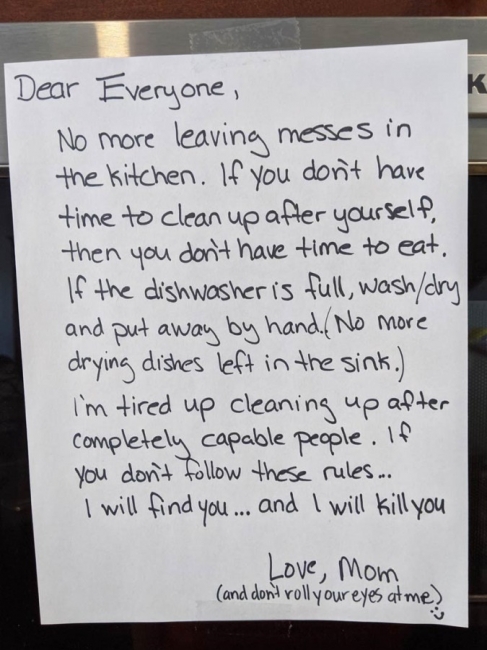 Dear Everyone,
No more leaving messes in
the kitchen. If you don't have
time to clean up after yourself,
then you don't have time to eat.
If the dishwasher is full, wash/dry
and put away by hand. (No more
drying dishes left in the sink.)
I'm tired up cleaning up after
completely capable people. If
you don't follow these rules...
I will find you... and I will kill you
Love, Mom
(and don't roll your eyes at me)
K